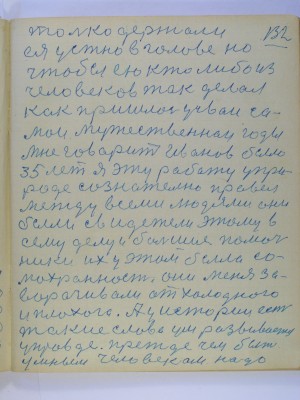 132
толкодержали
ся устно в голове но
чтобы ею кто либо из
человеков так делал
как пришлось у ваи са-
мои мужественнаи годы
мне говарит Иванов было
35 лет я эту работу у при-
роде сознателно провел
между всеми людями они
были свидетели этому в
сему делу и бывшие помоч-
ники их у этом была со-
мохранность, они меня за-
ворачивали от холодного
и плохого. А у истории ест
такие слова им развивается
управде. прежде чем быть
умным человекам надо